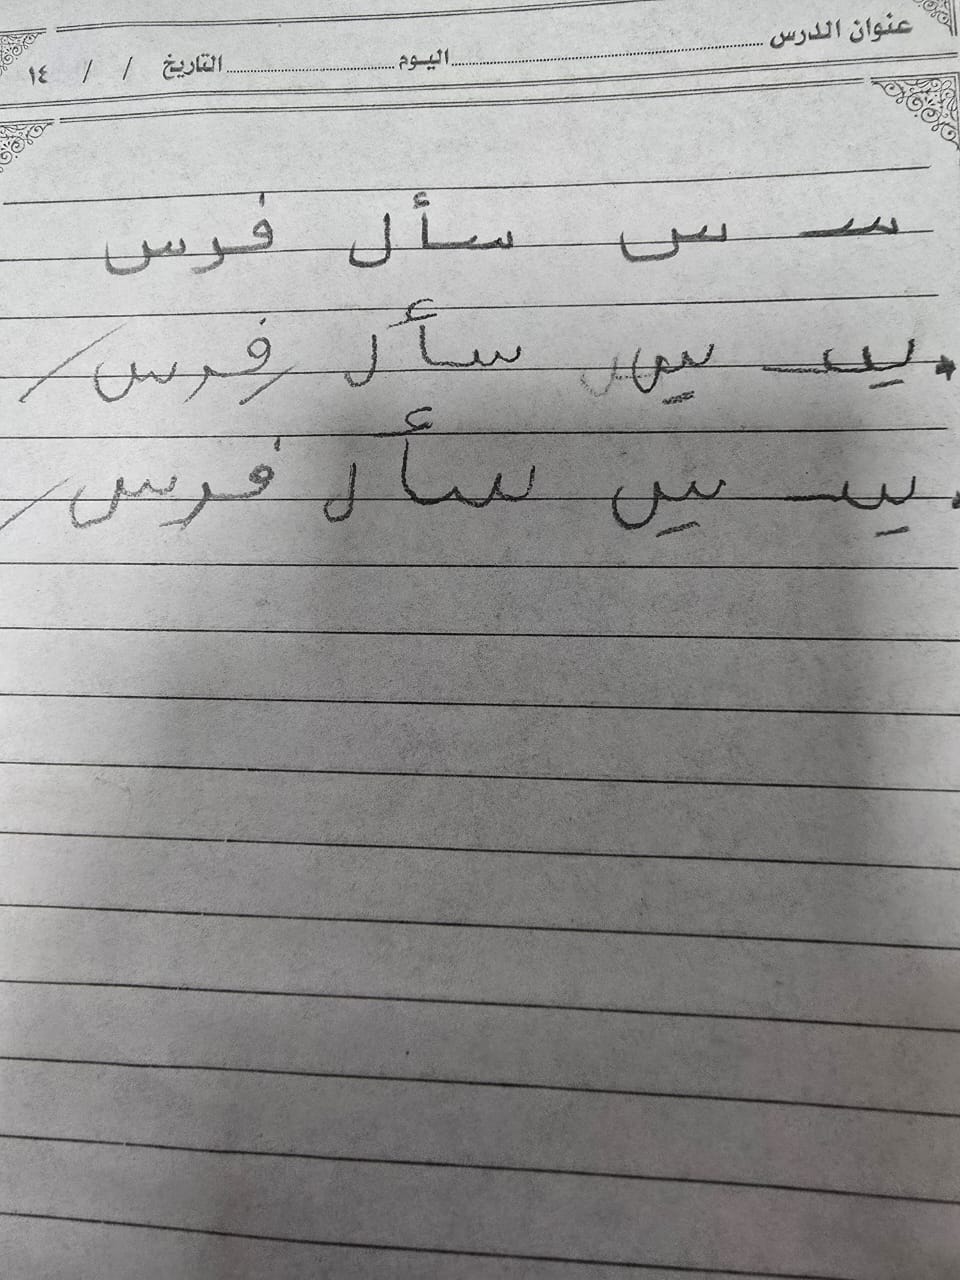 عنوان الدرس ........ اليوم ........ التاريخ / / ١٤
سـ س سأل فرس
سـ س سأل فرس
سـ س سأل فرس